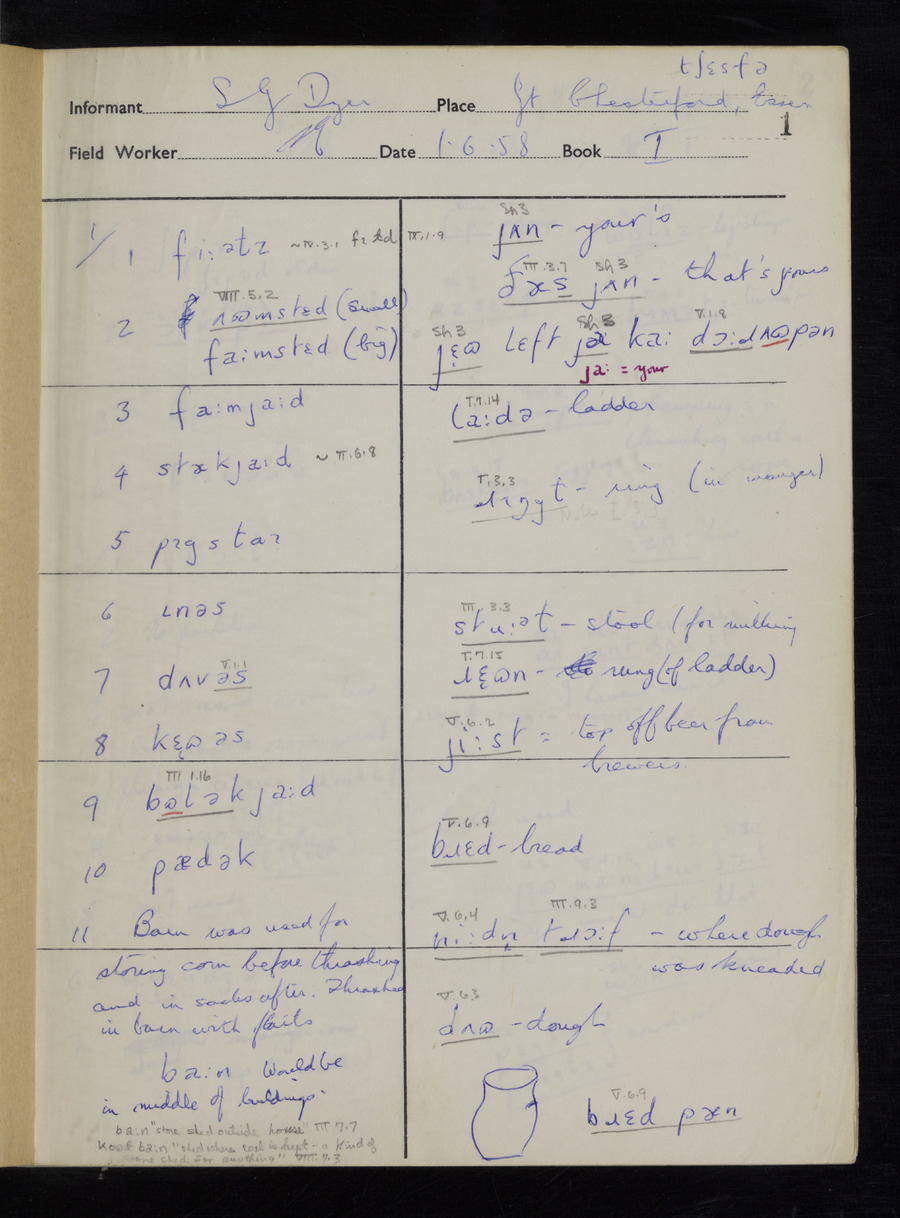 tʃɛstə
Informant S G Dyer Place Gt Chesterford, Essex
1
Field Worker Date 1.6.58 Book I
1/1 fiːətz ~ IV.3.1
VIII.5.2
2 ɹɷmstɛd (small)
faːmstɛd (big)
3 faːmjaːd
4 stækjaːd ~ II.6.8
5 pɪgstaɪ
6 ɩnəs
V.1.1
7 dʌvəs
8 kɛɷəs
III 1.16
9 bɷlək jaːd
10 pædək
11 Barn was used for
storing corn before thrashing
and in sacks after. Thrashed
in barn with flails
baːn would be
in middle of buildings.
baːn "store shed outside house" III 7.7
"shed where coal is kept – a kind of
store shed for anything" VIII.7.3
IX.1.9
Sh 3
jʌn – your's
III.3.7 Sh 3
ðæs jʌn – that's yours
Sh 3 Sh 3 V.1.8
jɛɷ left kaː dɔːdʌɷpən
jaː = your
I.7.14
laːdə – ladder
I.3.3
ɹɪŋgt – ring (in manger)
III 3.3
stuːət – stool (for milking
I.7.15
ɹɛɷn – rung (of ladder)
V.6.2
jiːst = top off beer from
brewers.
V.6.9
bɹɛd – bread
V.6.4 III.9.3
niːdn tɹɔːf – where dough
was kneaded
V.6.3
dʌɷ – dough
V.6.9
bɹɛd pæn